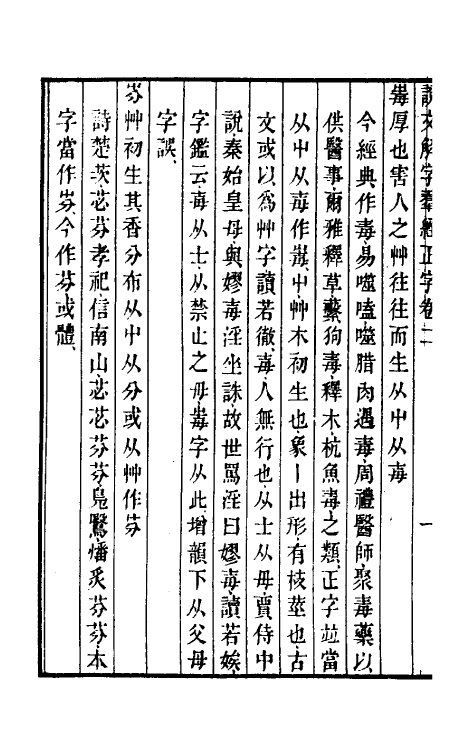 說文解字羣經正字卷二　一
毒厚也害人之艸往往而生从屮从毐
今經典作毒易噬嗑噬腊肉遇毒周禮醫師聚毒藥以
供醫事爾雅釋草藈狗毒釋木杭魚毒之類正字竝當
从屮从毐作𡴕屮艸木初生也象丨出形有枝莖也古
文或以爲艸字讀若徹毐人無行也从士从毋賈侍中
說秦始皇母與嫪毐淫坐誅故世罵淫曰嫪毐讀若娭
字鑑云毐从士从禁止之毋毒字从此增韻下从父母
字誤
芬艸初生其香分布从屮从分或从艸作芬
詩楚茨苾芬孝祀信南山苾苾芬芬鳧鷖燔炙芬芬本
字當作岁今作芬或體